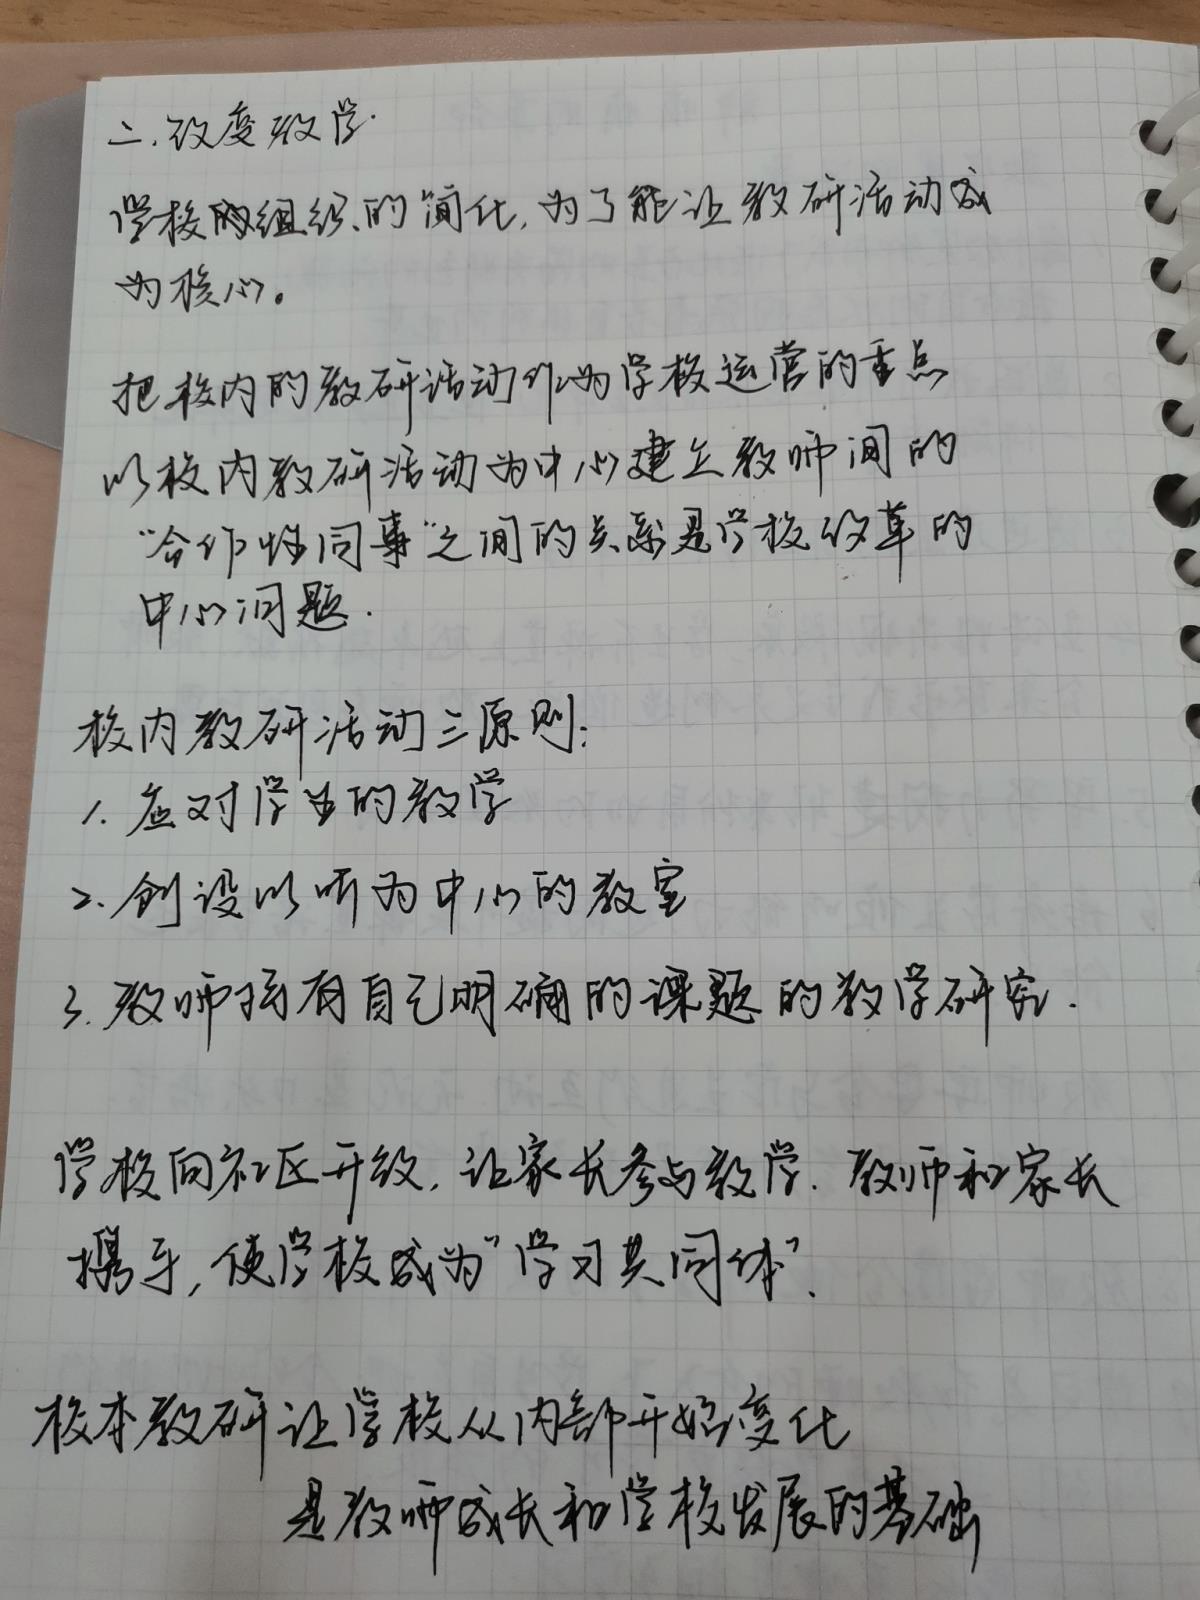 二.改变教学.
学校组织的简化,为了能让教研活动成
为核心。
把校内的教研活动作为学校运营的重点
以校内教研活动为中心建立教师间的
“合作性同事”之间的关系是学校改革的
中心问题.
校内教研活动三原则:
1. 应对学生的教学
2. 创设以听为中心的教室
3. 教师持有自己明确的课题的教学研究.
学校向社区开放,让家长参与教学.教师和家长
携手,使学校成为“学习共同体”.
校本教研让学校从内部开始变化
是教师成长和学校发展的基础